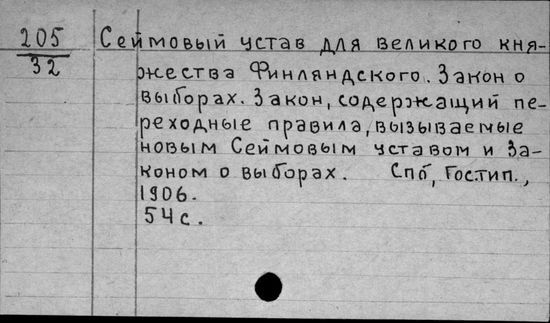 205
32
Сеймовый устав для великого кня-
жества Финляндского. Закон о
выборах. Закон, содержащий пе-
реходные правила, вызываемые
новым Сеймовым уставом и За-
коном о выборах. Спб, Гостип.,
1906.
54 с.